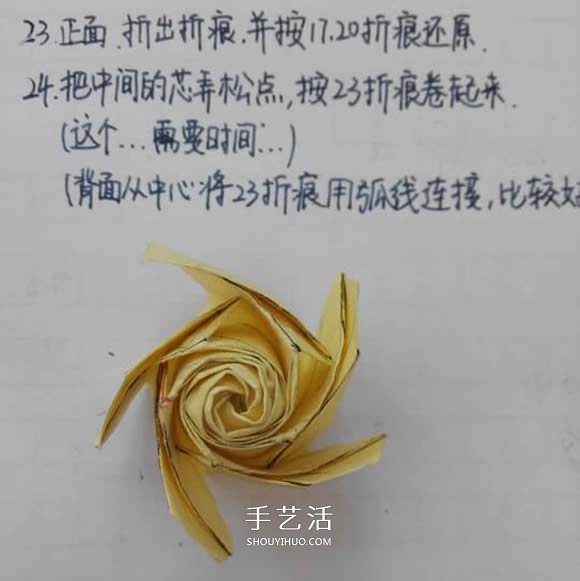 23.正面.折出折痕.并按17.20折痕还原.
24.把中间的芯弄松点,按23折痕卷起来.
(这个...需要时间...)
(背面从中心将23折痕用弧线连接,比较好
手艺活
SHOUYIHUO.COM